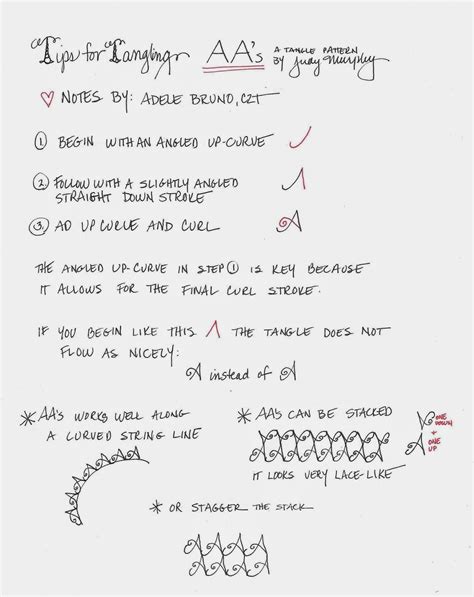 Tips for Tangling AA's A TANGLE PATTERN BY Judy Murphy
NOTES BY: ADELE BRUNO, CZT
1 BEGIN WITH AN ANGLED UP-CURVE
2 FOLLOW WITH A SLIGHTLY ANGLED
STRAIGHT DOWN STROKE
3. AD UP CURVE AND CURL
THE ANGLED UP-CURVE IN STEP 1 IS KEY BECAUSE
IT ALLOWS FOR THE FINAL CURL STROKE.
IF YOU BEGIN LIKE THIS Λ THE TANGLE DOES NOT
FLOW AS NICELY:
A instead of A
* AA'S WORKS WELL ALONG
A CURVED STRING LINE
* AA'S CAN BE STACKED
ONE DOWN
+
ONE UP
IT LOOKS VERY LACE-LIKE
* OR STAGGER THE STACK